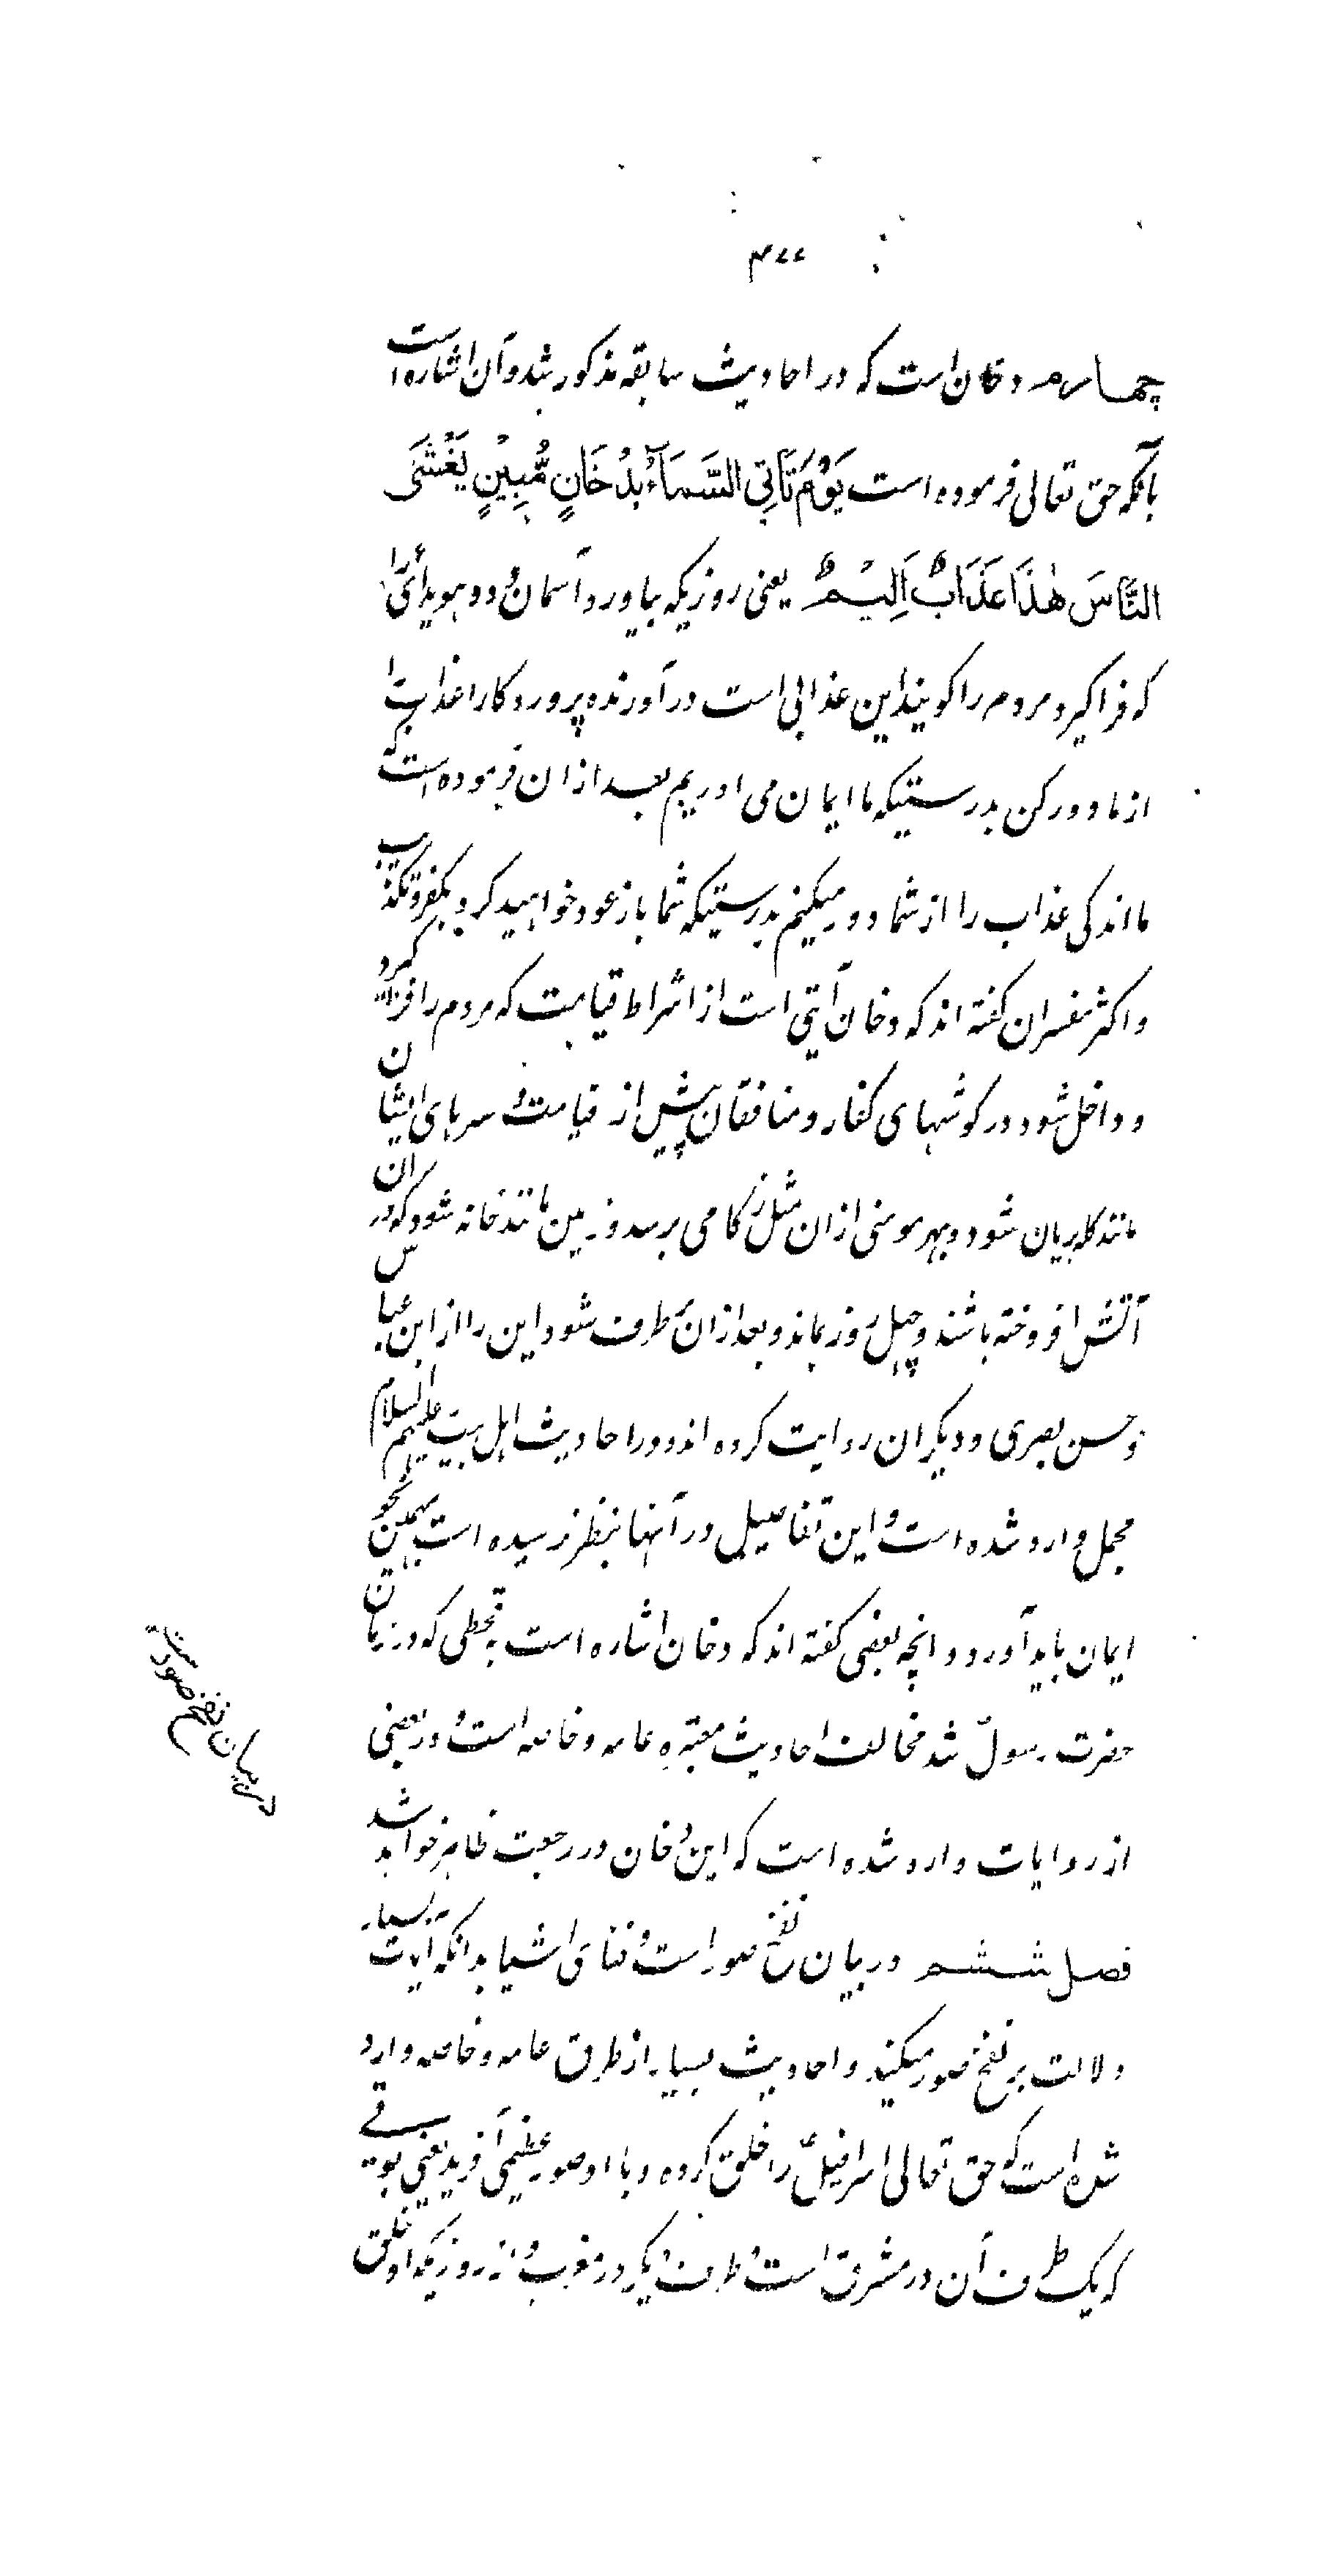 ۴۷۷
چهارم دخان است که در احادیث سابقه مذکور شد و آن اشاره است
بآنکه حق تعالی فرموده است یَوْمَ تَأْتِی السَّمَآءُ بِدُخَانٍ مُّبِیْنٍ یَغْشَی
النَّاسَ هٰذَا عَذَابٌ اَلِیْمٌ یعنی روزیکه بیاورد آسمان دود هویدائی را
که فرا گیرد مردم را گویند این عذابی است درآورنده پروردگارا عذاب را
از ما دور کن بدرستیکه ما ایمان می اوریم بعد ازان فرموده است که
ما اندکی عذاب را از شما دور میکنیم بدرستیکه شما باز عود خواهید کرد بکفر و تکذیب
و اکثر مفسران گفته اند که دخان آیتی است از اشراط قیامت که مردم را فرا گیرد
و داخل شود در گوشهای کفار و منافقان پیش از قیامت و سرهای ایشان
مانند کله بریان شود و بهر مومنی ازان مثل زکامی برسد و زمین مانند خانه شود که دران
آتش افروخته باشند و چهل روز بماند و بعد ازان بر طرف شود این را از ابن عباس
و حسن بصری و دیگران روایت کرده اند و در احادیث اهل بیت علیهم السلام
مجمل وارد شده است و این تفاصیل در آنها بنظر نرسیده است بهمین نحو
ایمان باید آورد و انچه بعضی گفته اند که دخان اشاره است به قحطی که در زمان
حضرت رسولؐ شد مخالف احادیث معتبرهٔ عامه و خاصه است و در بعضی
از روایات وارد شده است که این دخان در رجعت ظاهر خواهد شد
فصل ششم در بیان نفخ صور است و فنای اشیا بدانکه آیات بسیار
دلالت بر نفخ صور میکند و احادیث بسیار از طرق عامه و خاصه وارد
شده است که حق تعالی اسرافیلؑ را خلق کرده و با او صور عظیمی آفریده یعنی بوقی
که یک طرف آن در مشرق است و طرف دیگر در مغرب و از روزیکه او خلق
در بیان نفخ صور است